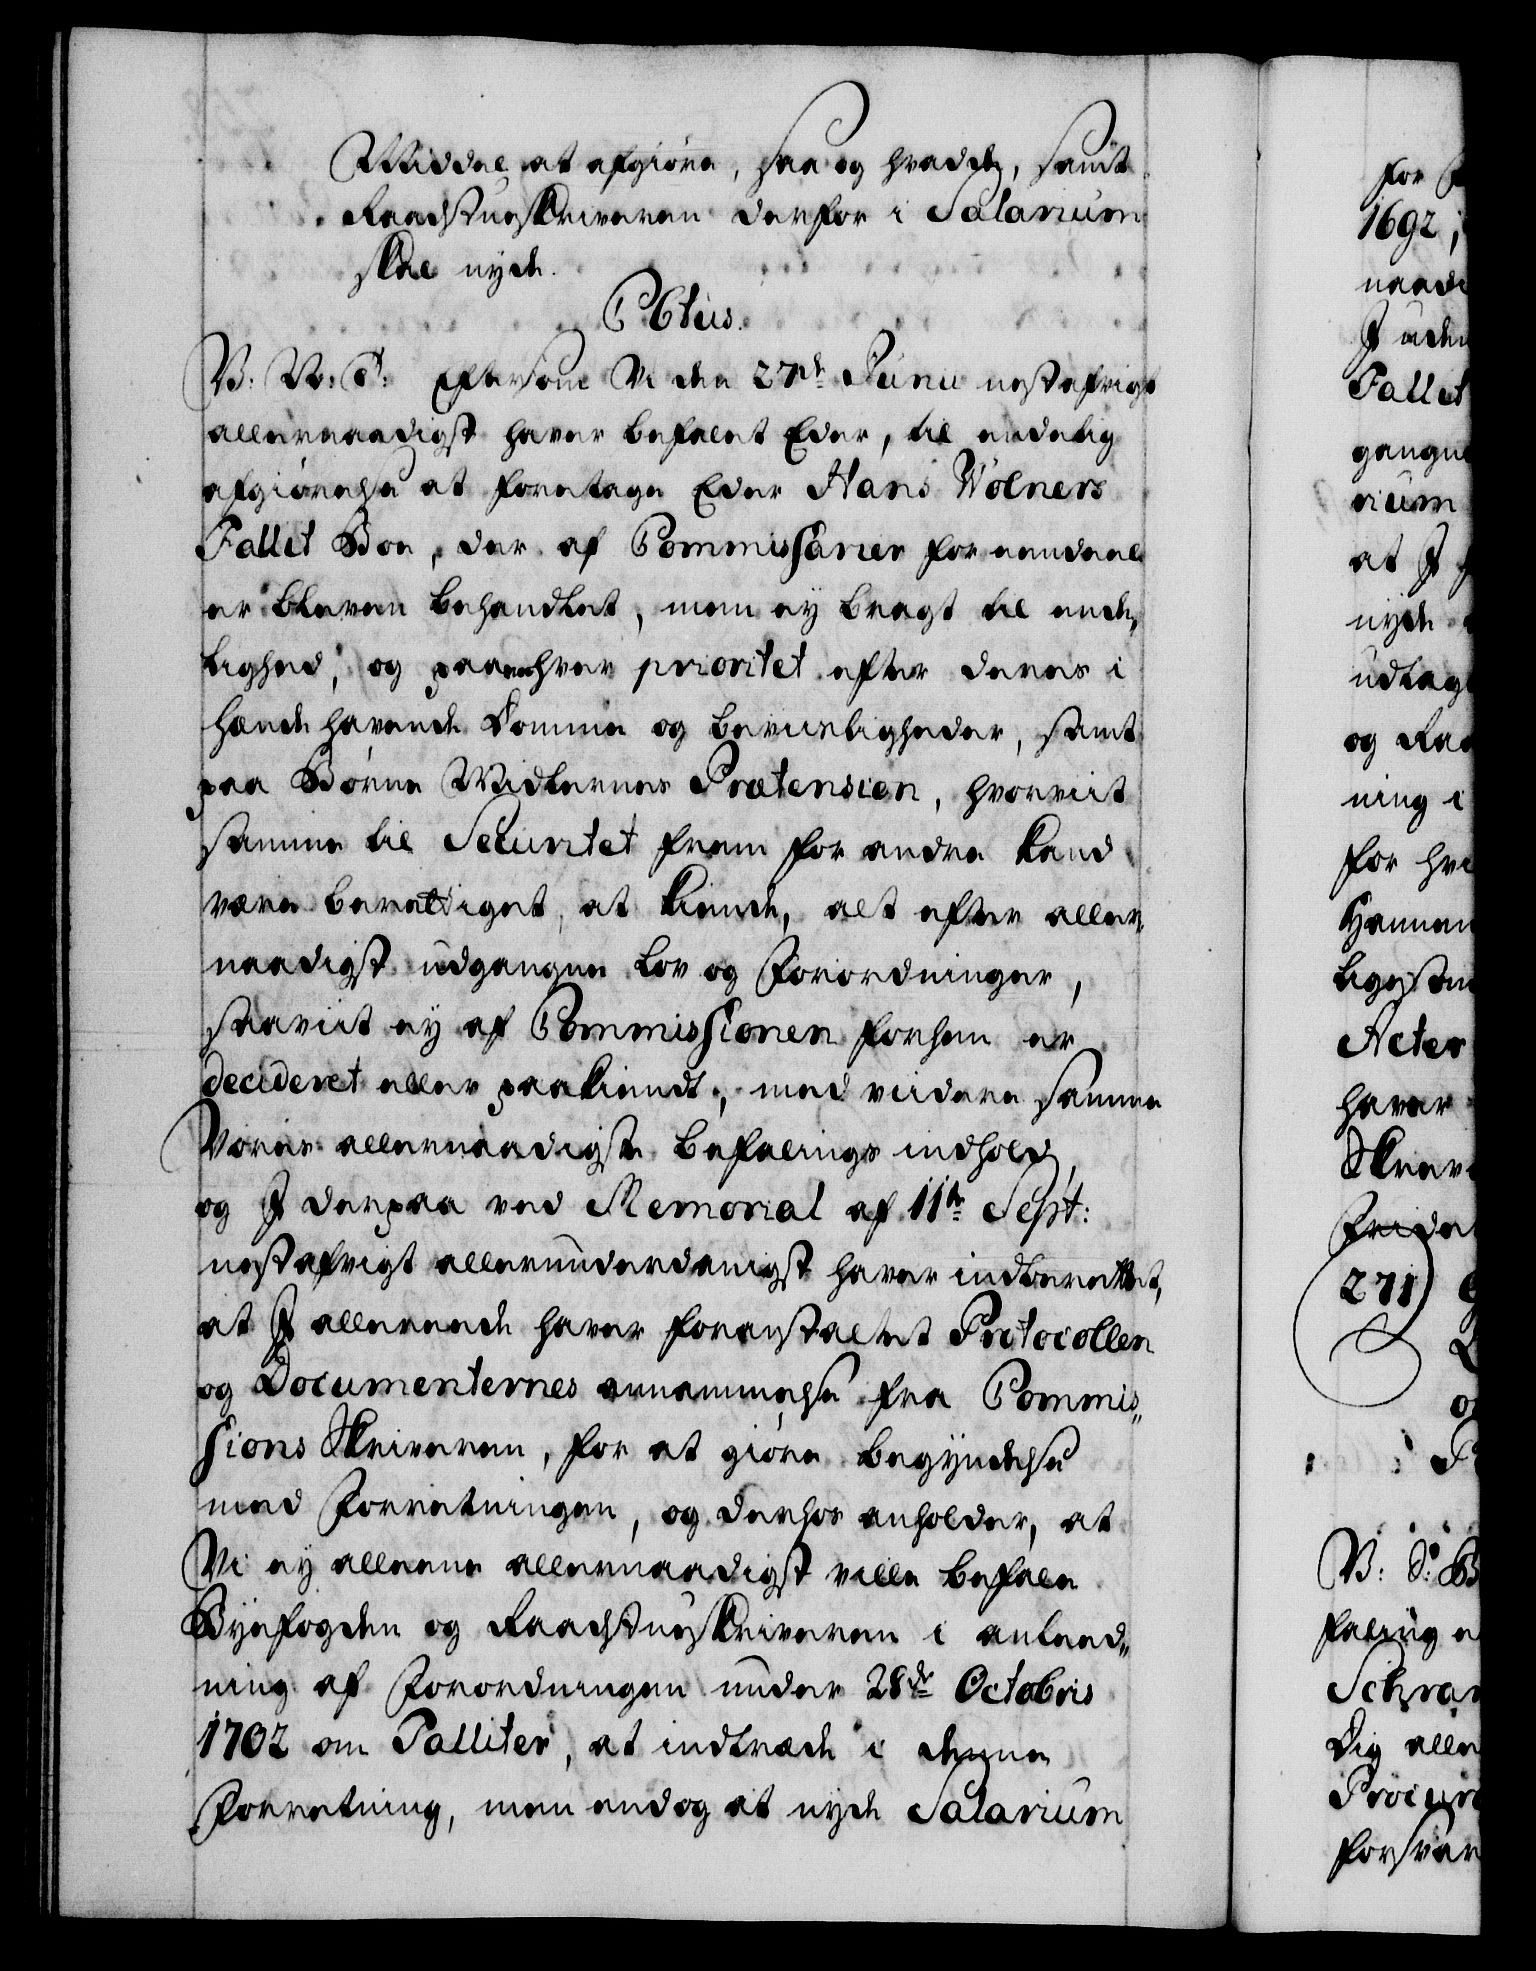 Middel at afgiøre, saa og hvad de, samt
Raadstueskriveren derfor i Salarium
skal nyde.
C6tus.
V: V: G: Eftersom Vi den 27de Junii nestafvigt
allernaadigst haver befalet Eder, til endelig
afgiørelse at foretage Eder Hans Wölners
Fallit Boe, der af Commissarier for eendeel
er bleven behandlet, men ey bragt til ende,
lighed, og paa enhver prioritet efter deres i
hænde havende Domme og beviisligheder, samt
paa Børne Midlernes Prætension, hvorviit
samme til Securitet frem for andre kand
være berettiget, at kiende, alt efter aller,
naadigst udgangne Lov og Forordninger,
saaviit ey af Commissionen forhen er
decideret eller paakiendt, med viidere samme
Vores allernaadigste befalings indhold,
og I derpaa ved Memorial af 11te Sept:
nestafvigt allerunderdanigst haver indberettet,
at I allereede haver foranstaltet Protocollen
og Documenternes annammelse fra Commis,,
sions Skriveren, for at giøre begyndelse
med Forretningen, og derhos anholder, at
Vi ey alleene allernaadigst ville befale
Byefogden og Raadstueskriveren i anleed,,
ning af Forordningen under 28de Octobris
1702 om Falliter, at indtræde i denne
Forretning, men endog at nyde Salarium
for
1692,
naadi
I uden
Fallit
gangne
rium
at I
nyde
udlag
og Raa
ning i
for hvi
Hammer
ligesom
Acter
haver
Skrev
Frider
271)
V: S: B
faling
Schra
Dig alle
Procur
forsvar